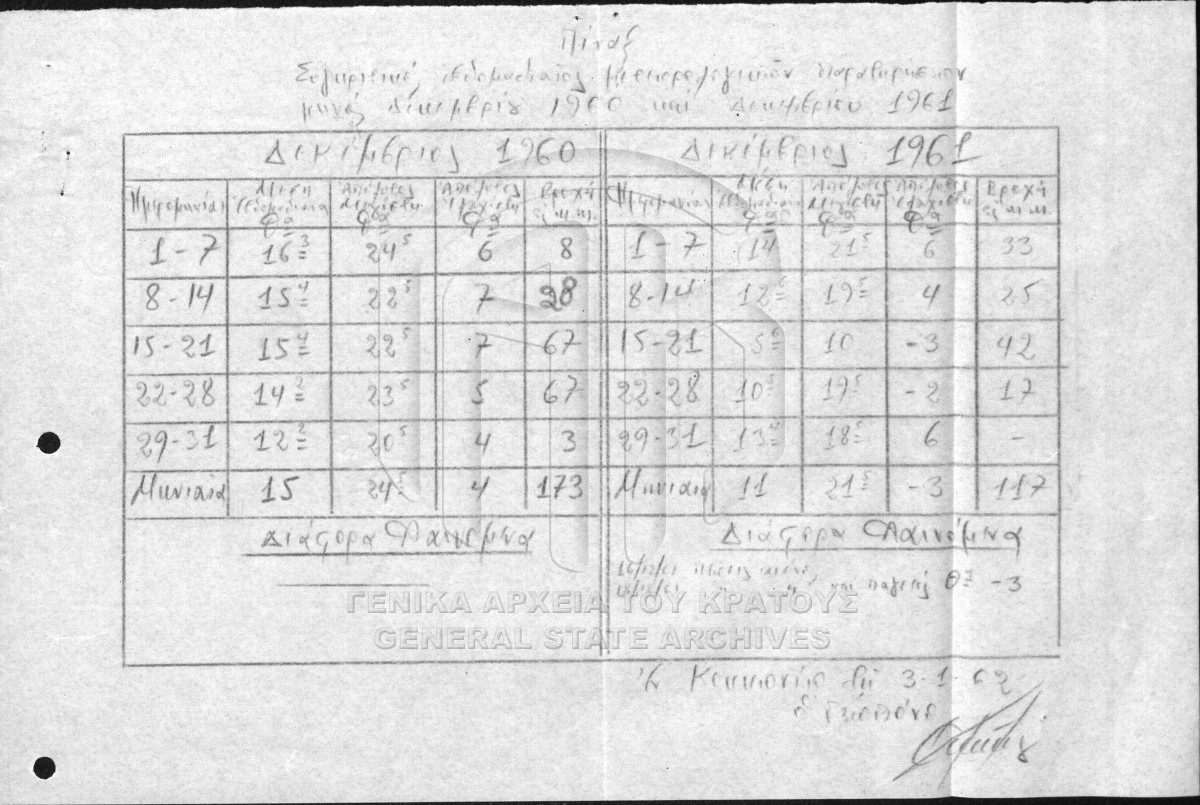 Πίναξ
Συγκριτικός εβδομαδιαίος μετεορολογικών παρατηρήσεων
μηνός Δεκεμβρίου 1960 και Δεκεμβρίου 1961
Δεκέμβριος 1960 Δεκέμβριος 1961
Ημερομηνίαι Μέση Εβδομαδιαία Θα Απόλυτος Μεγίστη Θα Απόλυτος Ελαχίστη Θα Βροχή εις m.m. Ημερομηνίαι Μέση Εβδομαδιαία Θα Απόλυτος Μεγίστη Θα Απόλυτος Ελαχίστη Θα Βροχή εις m.m.
1-7 16³ 24⁵ 6 8 1-7 14 21⁵ 6 33
8-14 15⁴ 22⁵ 7 28 8-14 12⁶ 19⁵ 4 25
15-21 15⁴ 22⁵ 7 67 15-21 5⁶ 10 -3 42
22-28 14² 23⁵ 5 67 22-28 10⁵ 19⁵ -2 17
29-31 12² 20⁵ 4 3 29-31 13⁴ 18⁵ 6 -
Μηνιαία 15 24⁵ 4 173 Μηνιαία 11 21⁵ -3 117
Διάφορα Φαινόμενα Διάφορα Φαινόμενα
και παγετός Θα -3
ΓΕΝΙΚΑ ΑΡΧΕΙΑ ΤΟΥ ΚΡΑΤΟΥΣ
GENERAL STATE ARCHIVES
τη 3-1-62
Ο Γεωπόνος